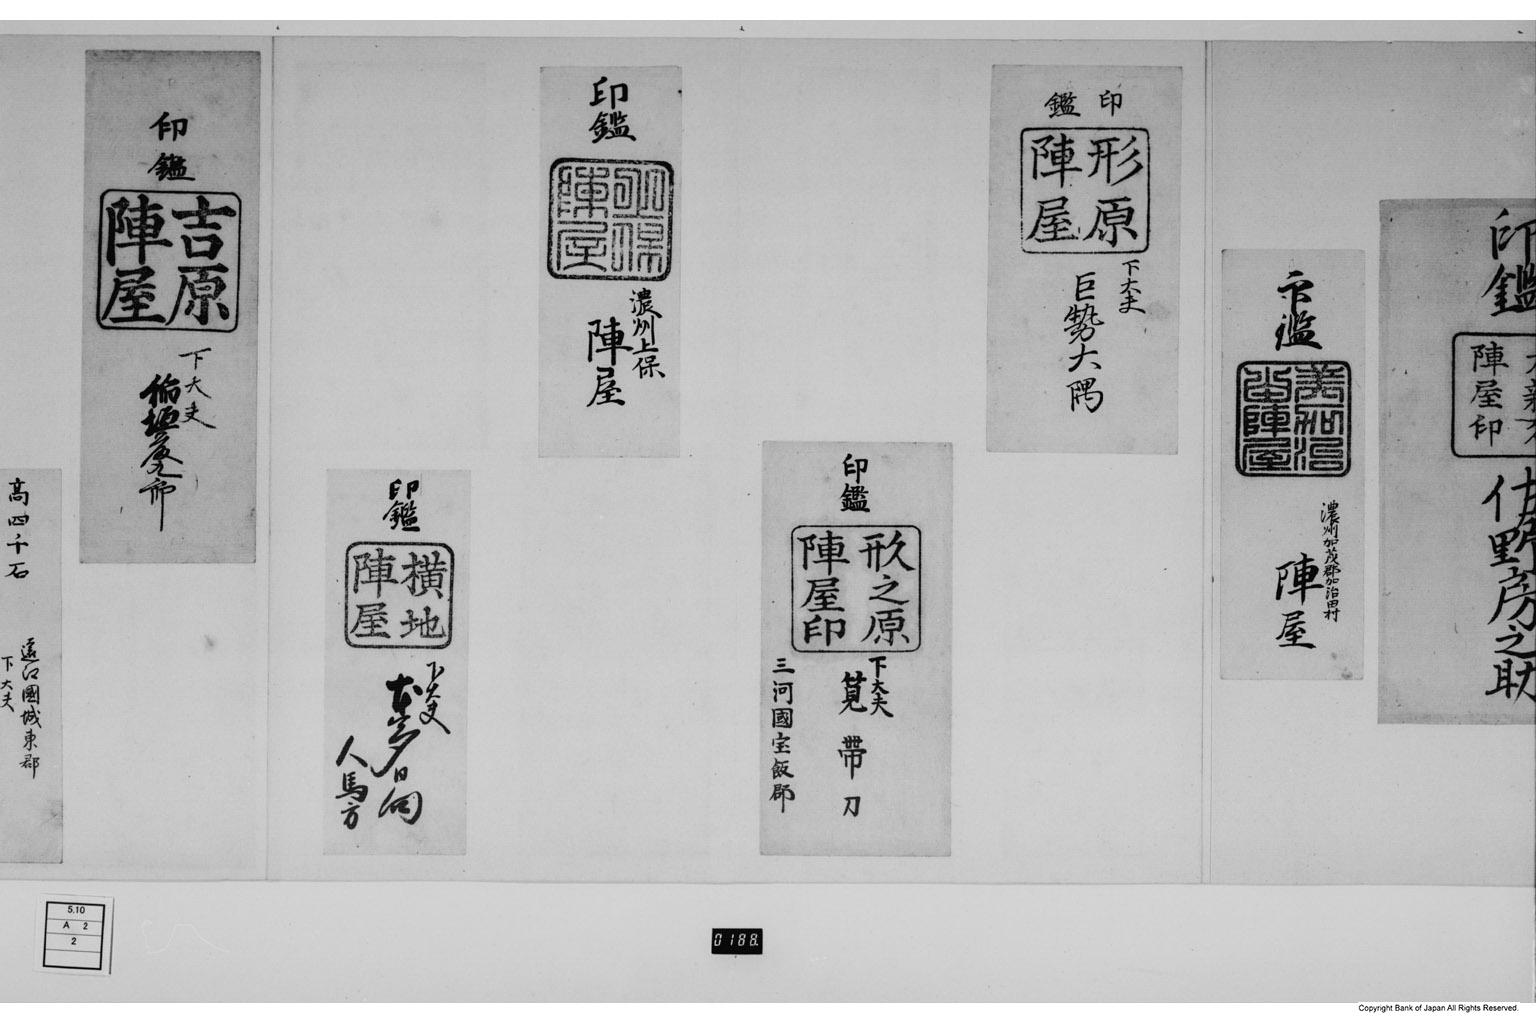 印鑑
陣
屋印
野房之助
印鑑
濃州加茂郡加治田村
陣屋
印鑑
形原
陣屋
下大夫
巨勢大隅
印鑑
形之原
陣屋印
下大夫
筧帯刀
三河國宝飯郡
印鑑
上保
陣屋
濃州上保
陣屋
印鑑
横地
陣屋
下大夫
本多日向
人馬方
印鑑
吉原
陣屋
下大夫
高四千石
遠江國城東郡
下大夫
5.10
A 2
2
0188.
Copyright Bank of Japan All Rights Reserved.